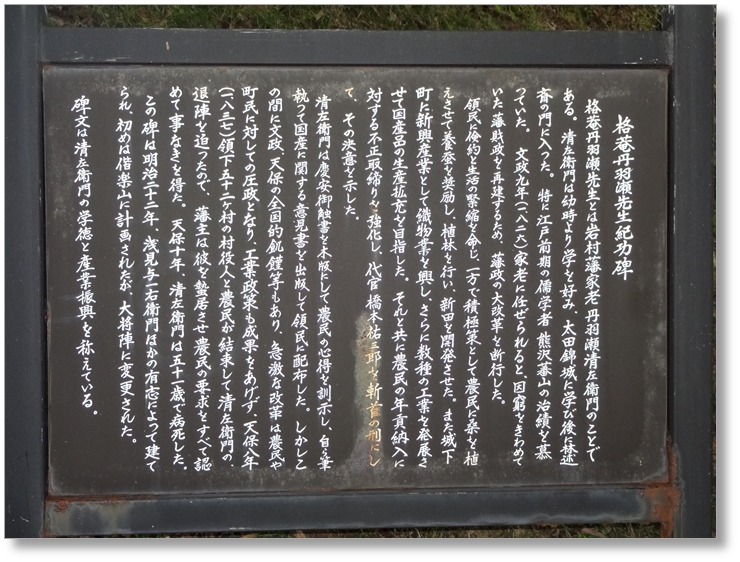 格菴丹羽瀬先生紀功碑
格菴丹羽瀬先生とは岩村藩家老丹羽瀬清左衛門のことで
ある。清左衛門は幼時より学を好み、太田錦城に学び後に林述
斎の門に入った。特に江戸前期の儒学者熊沢蕃山の治績を慕
っていた。文政九年(一八二六)家老に任ぜられると、困窮をきわめて
いた藩財政を再建するため、藩政の大改革を断行した。
領民に倹約と生活の緊縮を命じ、一方で積極策として農民に桑を植
えさせて養蚕を奨励し、植林を行い、新田を開発させた。また城下
町に新興産業として織物業を興し、さらに数種の工業を発展さ
せて国産品の生産拡充を目指した。それと共に農民の年貢納入に
対する不正取締りを強化し、代官橋本祐三郎を斬首の刑にし
て、その決意を示した。
清左衛門は慶安御触書を木版にして農民の心得を訓示し、自ら筆
執って国産に関する意見書を出版して領民に配布した。しかしこ
の間に文政、天保の全国的飢饉等もあり、急激な改革は農民や
町民に対しての圧政となり、工業政策も成果をあげず、天保八年
(一八三七)領下五十二ヶ村の村役人と農民が結束して清左衛門の
退陣を迫ったので、藩主は彼を蟄居させ農民の要求をすべて認
めて事なきを得た。天保十年、清左衛門は五十一歳で病死した。
この碑は明治二十二年、浅見与一右衛門ほかの有志によって建て
られ、初めは偕楽山に計画されたが、大将陣に変更された。
碑文は清左衛門の学徳と産業振興を称えている。